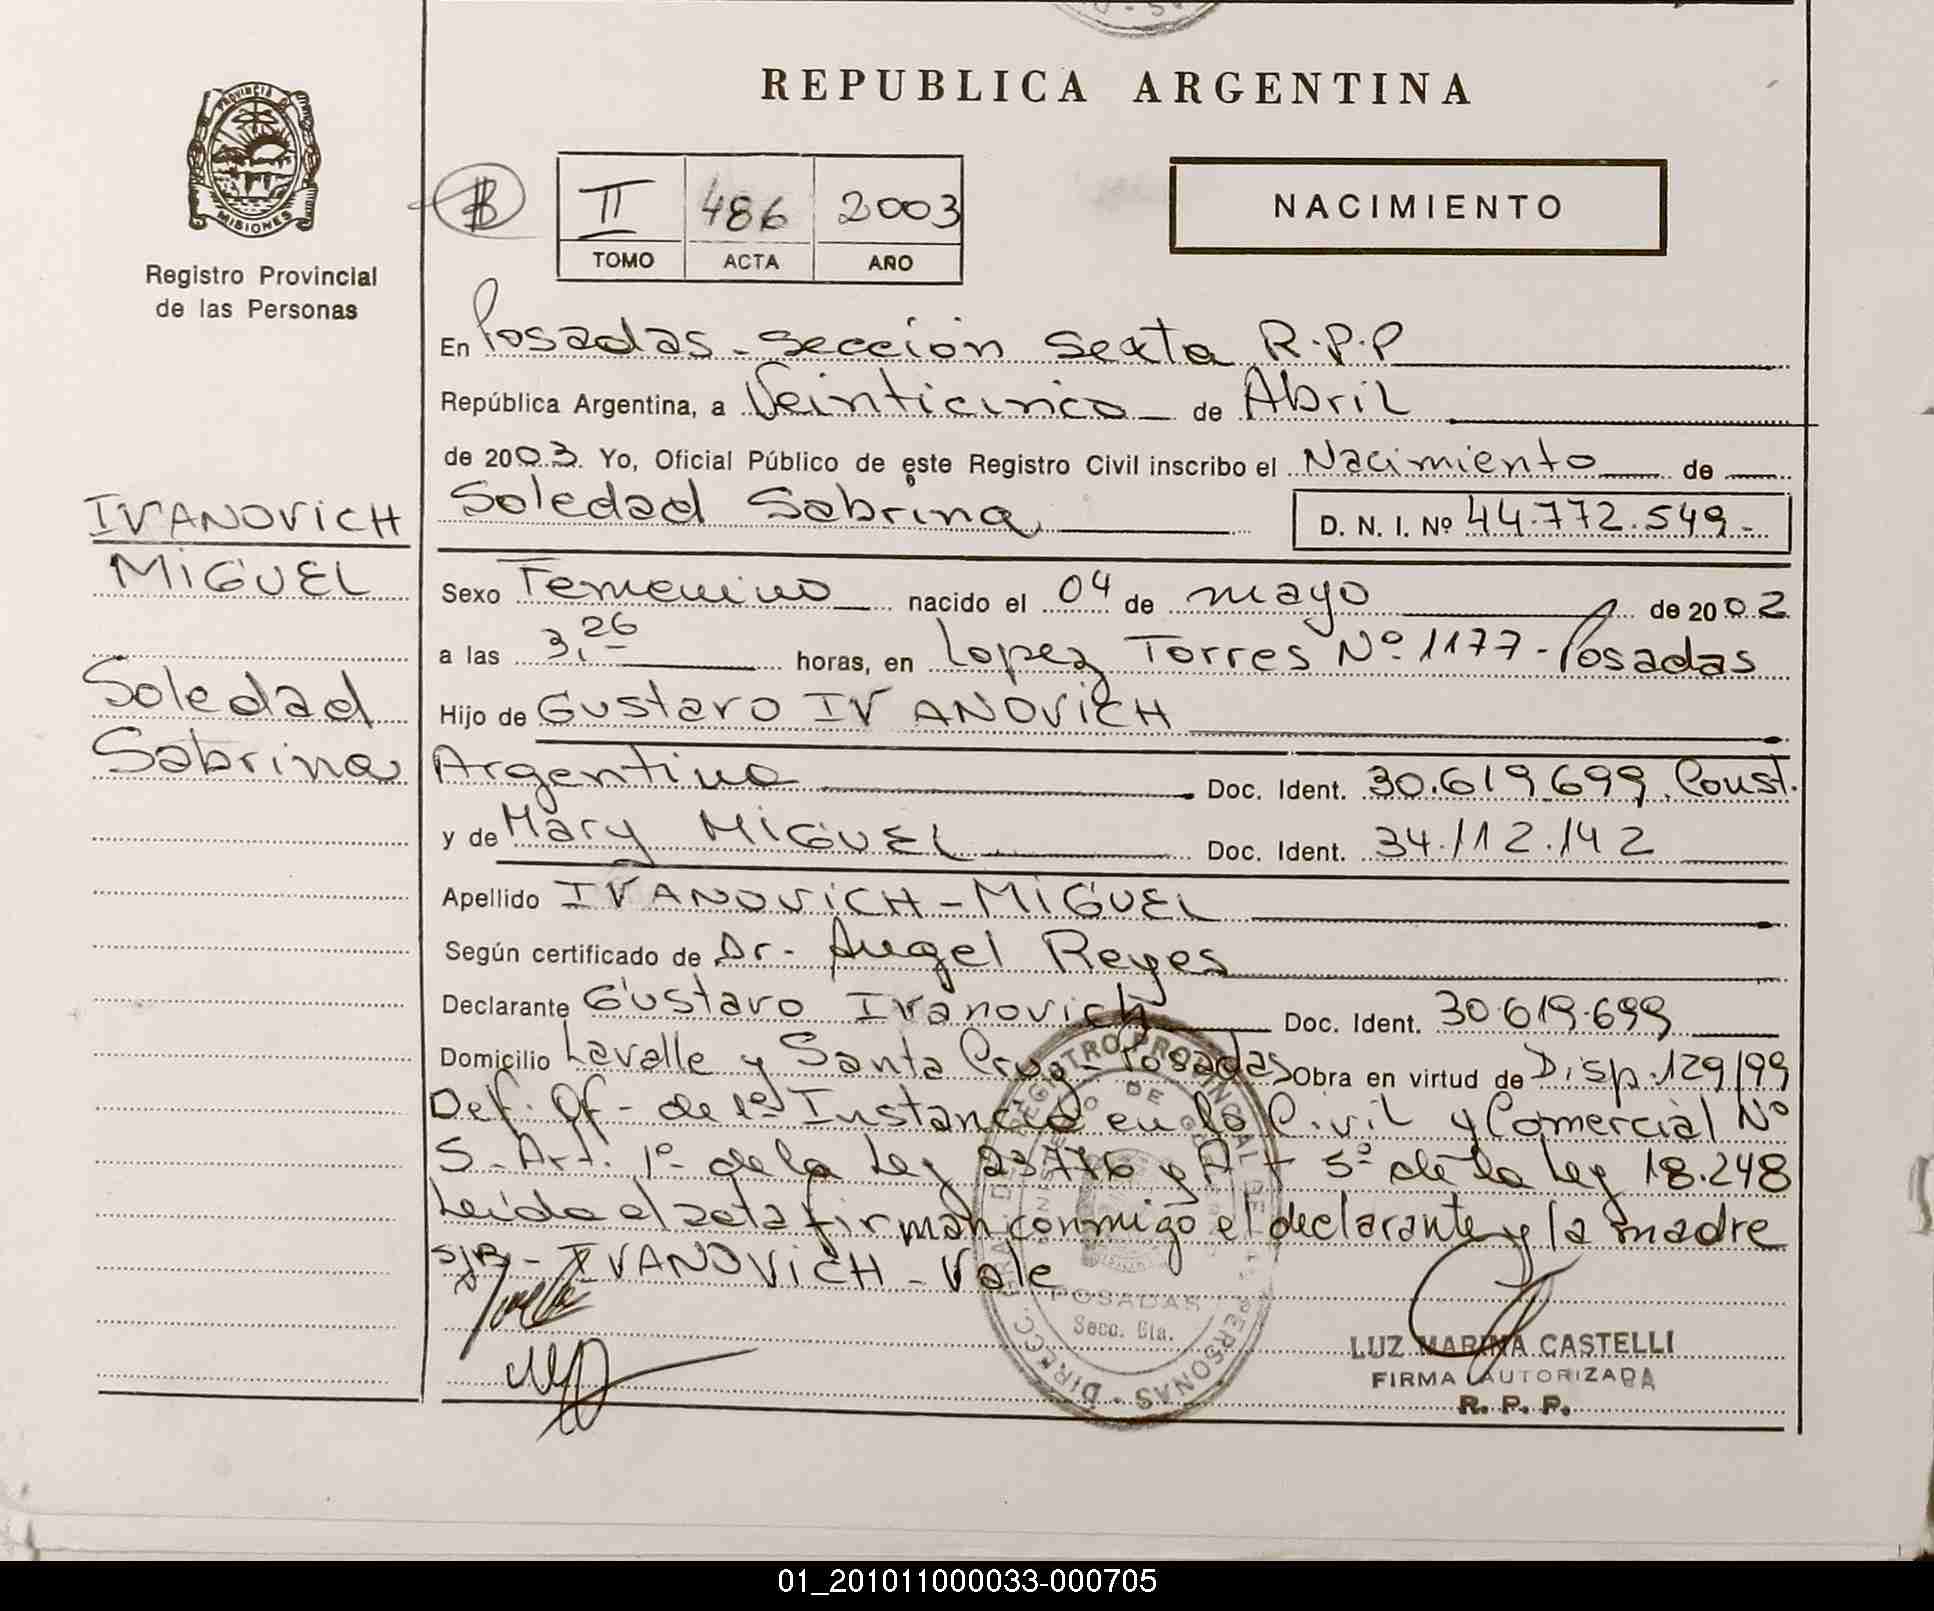 REPUBLICA ARGENTINA
PROVINCIA DE
MISIONES
Registro Provincial
de las Personas
II 486 2003
TOMO ACTA AÑO
NACIMIENTO
En Posadas - Sección Sexta R.P.P
República Argentina, a Veinticinco de Abril
de 2003. Yo, Oficial Público de este Registro Civil inscribo el Nacimiento de
Soledad Sabrina D. N. I. Nº 44.772.549.-
IVANOVICH
MIGUEL
Soledad
Sabrina
Sexo Femenino nacido el 04 de mayo de 2002
a las 3,26 horas, en Lopez Torres Nº 1177 - Posadas
Hijo de Gustavo IVANOVICH
Argentina Doc. Ident. 30.619.699. Const.
y de Mary MIGUEL Doc. Ident. 34.112.142
Apellido IVANOVICH - MIGUEL
Según certificado de Dr. Angel Reyes
Declarante Gustavo Ivanovich Doc. Ident. 30.619.699
Domicilio Lavalle y Santa Cruz - Posadas Obra en virtud de Disp. 129/99
Def. Of. de 1ª Instancia en lo Civil y Comercial Nº
5 - Art. 1º de la Ley 23776 y Art 5º de la Ley 18.248
Leída el acta firman conmigo el declarante y la madre
S/R - IVANOVICH - Vale
POSADAS
Secc. 6ta.
LUZ MARINA CASTELLI
FIRMA AUTORIZADA
R. P. P.
01_201011000033-000705